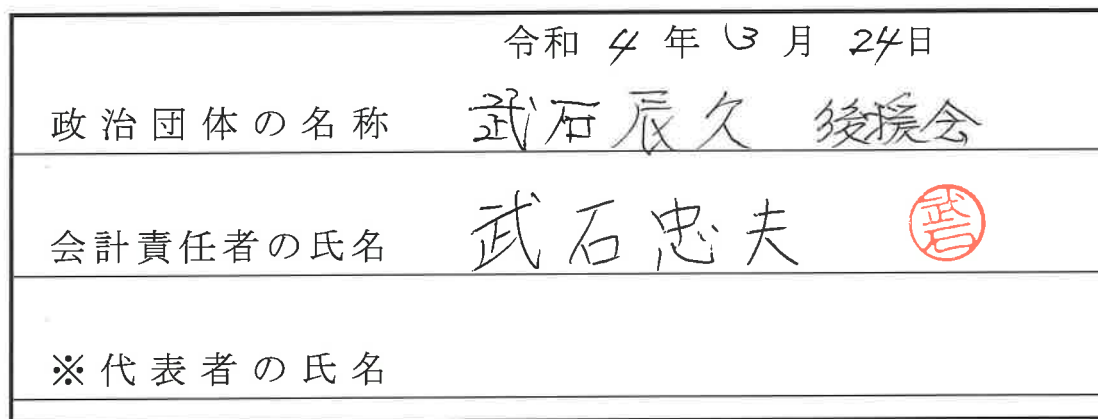 令和 4 年 3 月 24日
政治団体の名称 武石辰久 後援会
会計責任者の氏名 武石忠夫 武石
※代表者の氏名